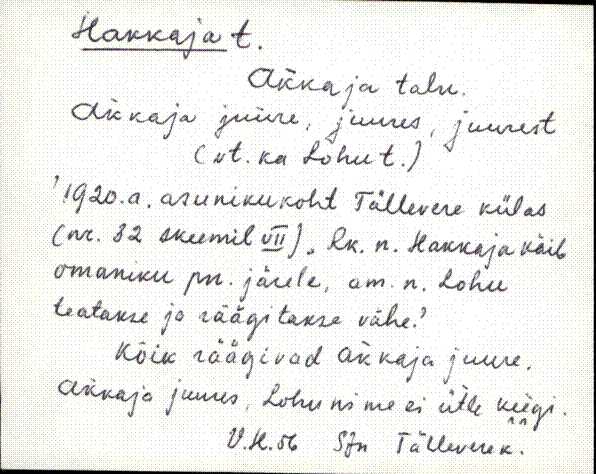 Hakkaja t.
Akkaja talu.
Akkaja juure, juures, juurest
(vt. ka Lohu t.)
'1920.a. asunikukoht Tällevere külas
(nr. 32 skeemil VII). Rk. n. Hakkaja käib
omaniku pn. järele, am. n. Lohu
teatakse ja räägitakse vähe.'
Kõik räägivad Akkaja juure,
Akkaja juures, Lohu nime ei ütle keegi.
V.H. 56 SJn Tällevere k.